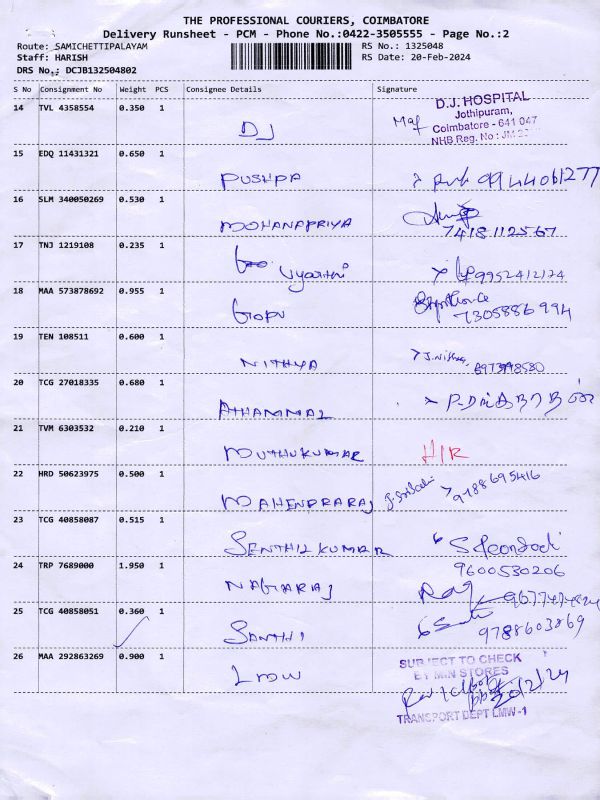 THE PROFESSIONAL COURIERS, COIMBATORE
Delivery Runsheet - PCM - Phone No.:0422-3505555 - Page No.:2
Route: SAMICHETTIPALAYAM RS No.: 1325048
Staff: HARISH RS Date: 20-Feb-2024
DRS No.: DCJB132504802
S No Consignment No Weight PCS Consignee Details Signature
14 TVL 4358554 0.350 1 DJ
D.J. HOSPITAL
Jothipuram,
Coimbatore - 641 047
NHB Reg. No : JM
15 EDQ 11431321 0.650 1 PUSHPA
16 SLM 340050269 0.530 1 MOHANAPRIYA 7418112567
17 TNJ 1219108 0.235 1 9952412124
18 MAA 573878692 0.955 1 GOPU 7305886994
19 TEN 108511 0.600 1 NITHYA
20 TCG 27018335 0.680 1 ATHAMMAL
21 TVM 6303532 0.210 1 MUTHUKUMAR
22 HRD 50623975 0.500 1 MAHENDRARAJ 9788695416
23 TCG 40858087 0.515 1 SENTHILKUMAR
9600530206
24 TRP 7689000 1.950 1 NAGARAJ Raj
25 TCG 40858051 0.360 1 SANTHI 9788603869
26 MAA 292863269 0.900 1 LMW
SUBJECT TO CHECK
BY MIN STORES
20/2/24
TRANSPORT DEPT LMW-1